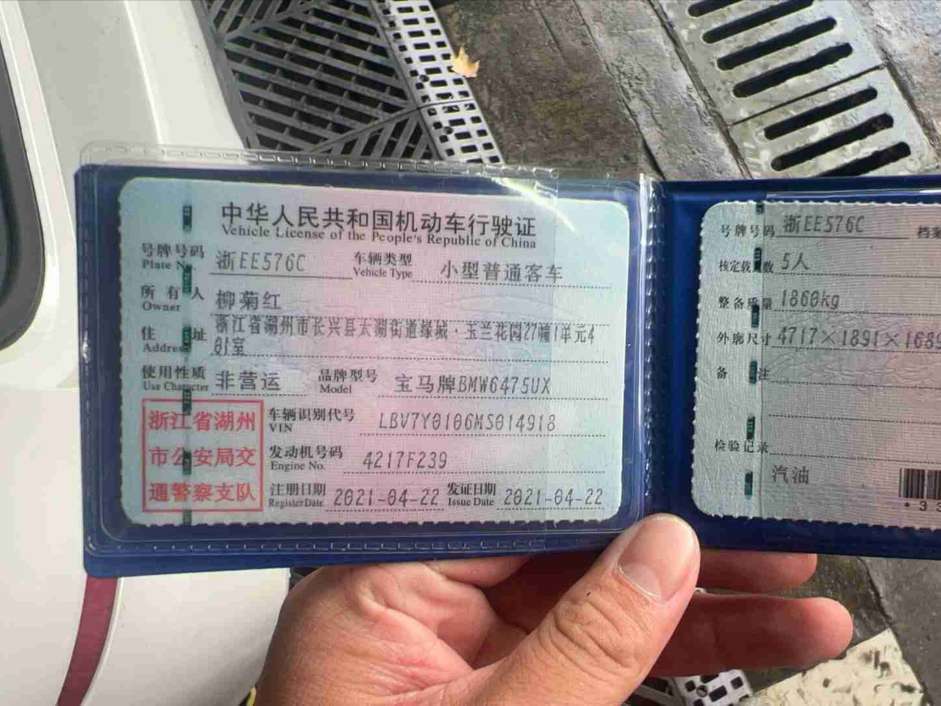 中华人民共和国机动车行驶证
Vehicle License of the People's Republic of China
号牌号码 浙EE576C 车辆类型 小型普通客车
Plate No. Vehicle Type
所有人 柳菊红
Owner
住址 浙江省湖州市长兴县太湖街道绿城·玉兰花园27幢1单元4
Address 01室
使用性质 非营运 品牌型号 宝马牌BMW6475UX
Use Character Model
浙江省湖州
市公安局交
通警察支队
车辆识别代号 LBV7Y0106MS014918
VIN
发动机号码 4217F239
Engine No.
注册日期 2021-04-22 发证日期 2021-04-22
Register Date Issue Date
号牌号码 浙EE576C 档案
核定载人数 5人
整备质量 1860kg
外廓尺寸 4717×1891×1689
备注
检验记录
汽油